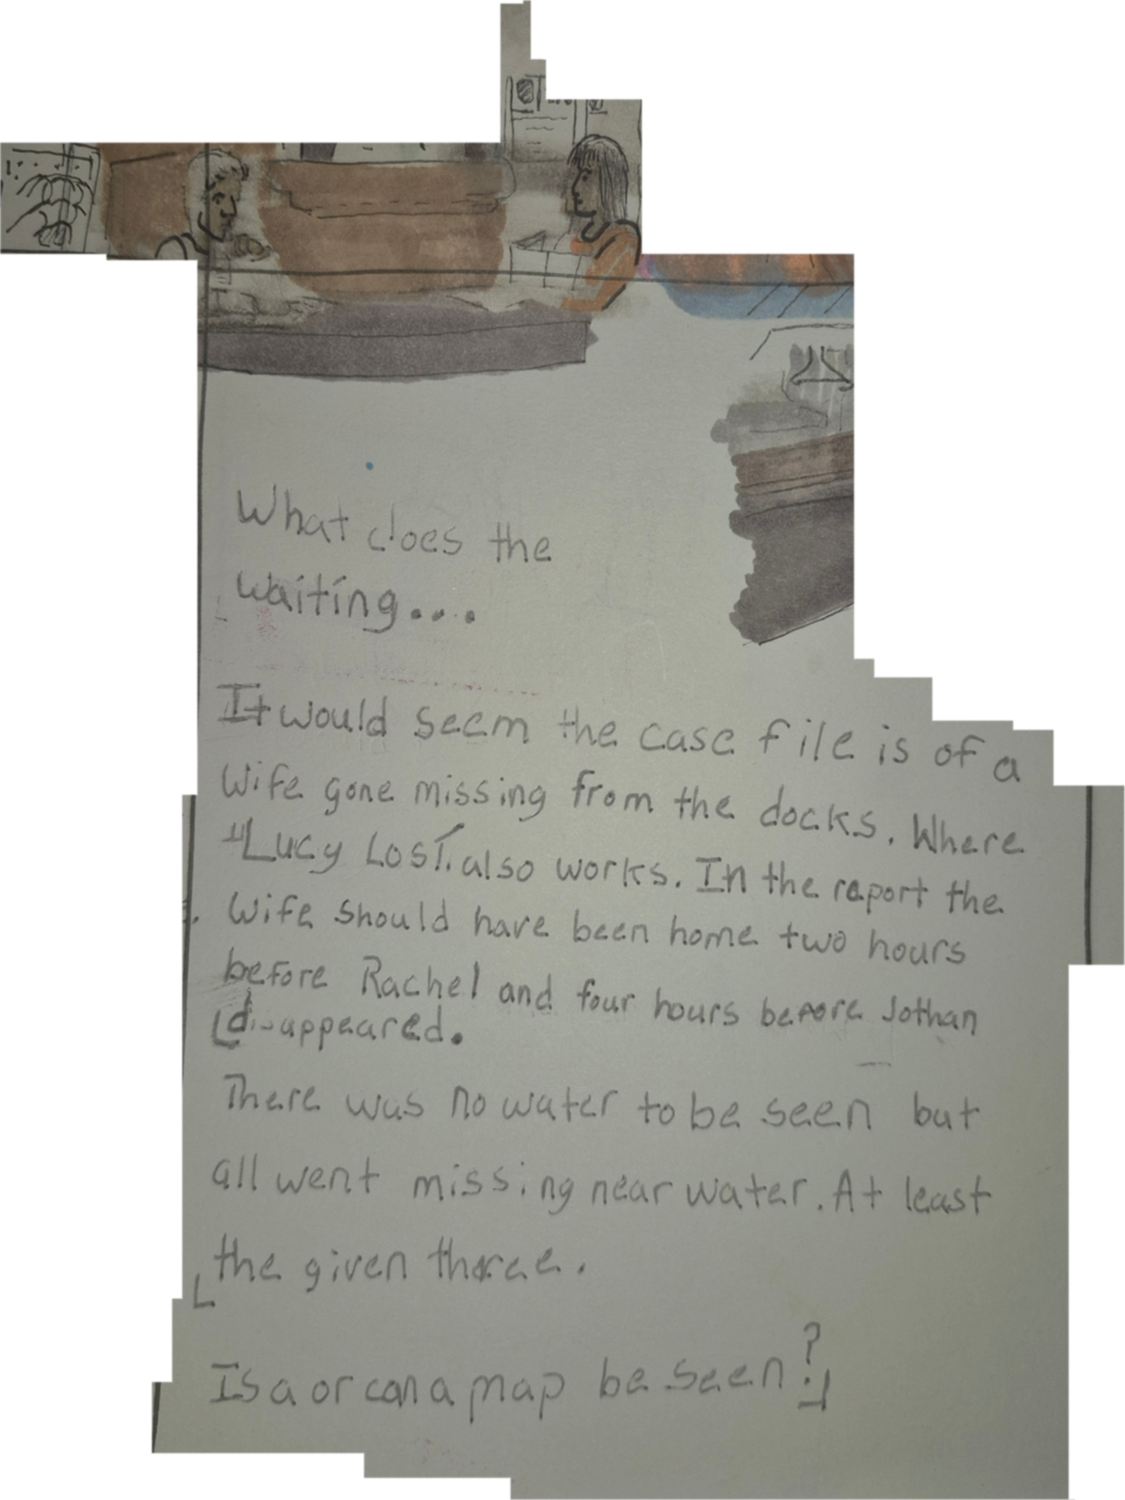 What does the
waiting....
It would seem the case file is of a
wife gone missing from the docks. Where
"Lucy Lost" also works. In the report the
wife should have been home two hours
before Rachel and four hours before Jothan
disappeared.
There was no water to be seen but
all went missing near water. At least
the given thoree.
Is a or can a map be seen?